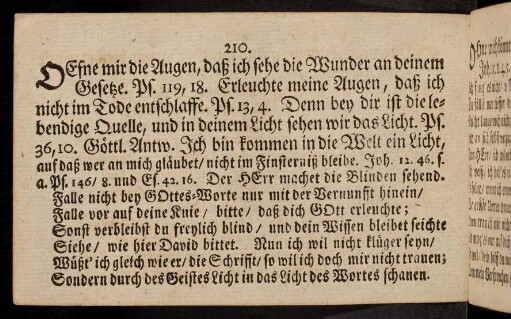 210.
OEfne mir die Augen, daß ich sehe die Wunder an deinem
Gesetze. Ps. 119, 18. Erleuchte meine Augen, daß ich
nicht im Tode entschlaffe. Ps. 13, 4. Denn bey dir ist die le-
bendige Quelle, und in deinem Licht sehen wir das Licht. Ps.
36, 10. Göttl. Antw. Ich bin kommen in die Welt ein Licht,
auf daß wer an mich gläubet/ nicht im Finsterniß bleibe. Joh. 12. 46. s.
a. Ps. 146/ 8. und Es. 42. 16. Der HErr machet die Blinden sehend.
Falle nicht bey GOttes-Worte nur mit der Vernunfft hinein/
Falle vor auf deine Knie/ bitte/ daß dich GOtt erleuchte;
Sonst verbleibst du freylich blind/ und dein Wissen bleibet seichte
Siehe/ wie hier David bittet. Nun ich wil nicht klüger seyn/
Wüßt' ich gleich wie er/ die Schrifft/ so wil ich doch mir nicht trauen;
Sondern durch des Geistes Licht in das Licht des Wortes schauen.